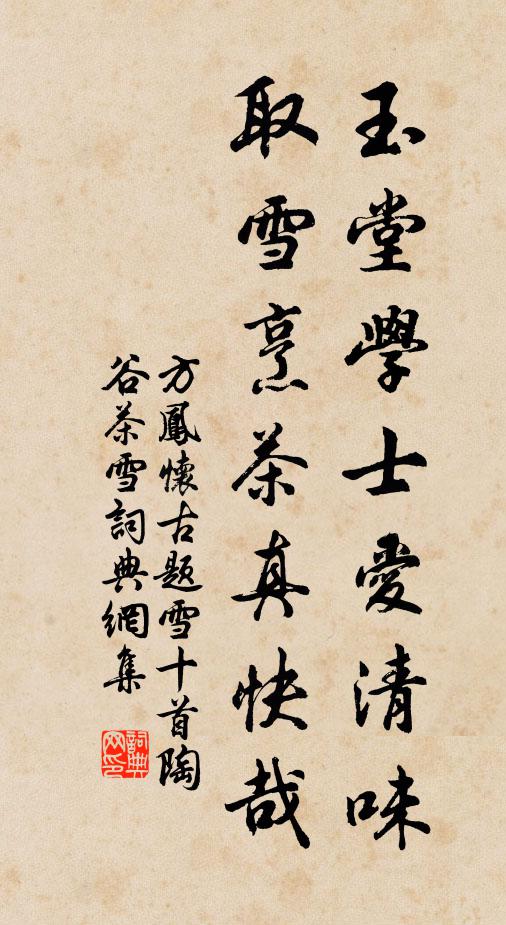 玉堂學士愛清味
取雪烹茶真快哉
方鳳懷古題雪十首陶
谷茶雪詞典網集
詞典
网印